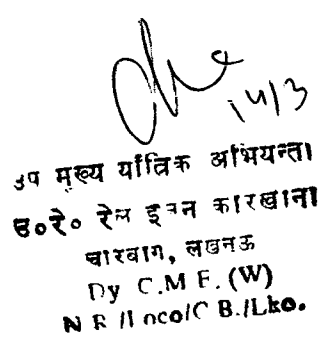 14/3
उप मुख्य यांत्रिक अभियन्ता
उ०रे० रेल इंजन कारखाना
चारबाग, लखनऊ
Dy C.M E. (W)
N R /Loco/C B./Lko.